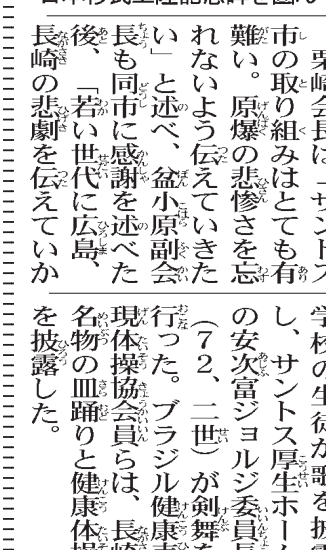 栗崎会長は「サントス
市の取り組みはとても有
難い。原爆の悲惨さを忘
れないよう伝えていきた
い」と述べ、盆小原副会
長も同市に感謝を述べた
後、「若い世代に広島、
長崎の悲劇を伝えていか
学校の生徒が歌を披
し、サントス厚生ホー
の安次富ジョルジ委員長
（72、二世）が剣舞を
行った。ブラジル健康
現体操協会員らは、長崎
名物の皿踊りと健康体操
を披露した。